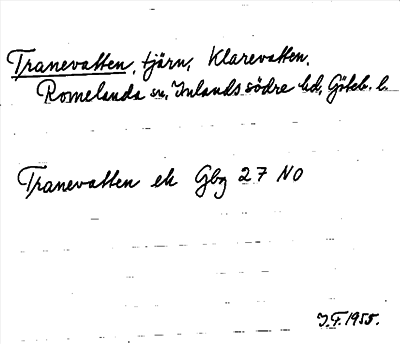 Tranevatten, tjärn, Klarevatten,
Romelanda sn, Inlands södre hd, Göteb. l.
Tranevatten ek Gbg 27 NO
J.F. 1955.